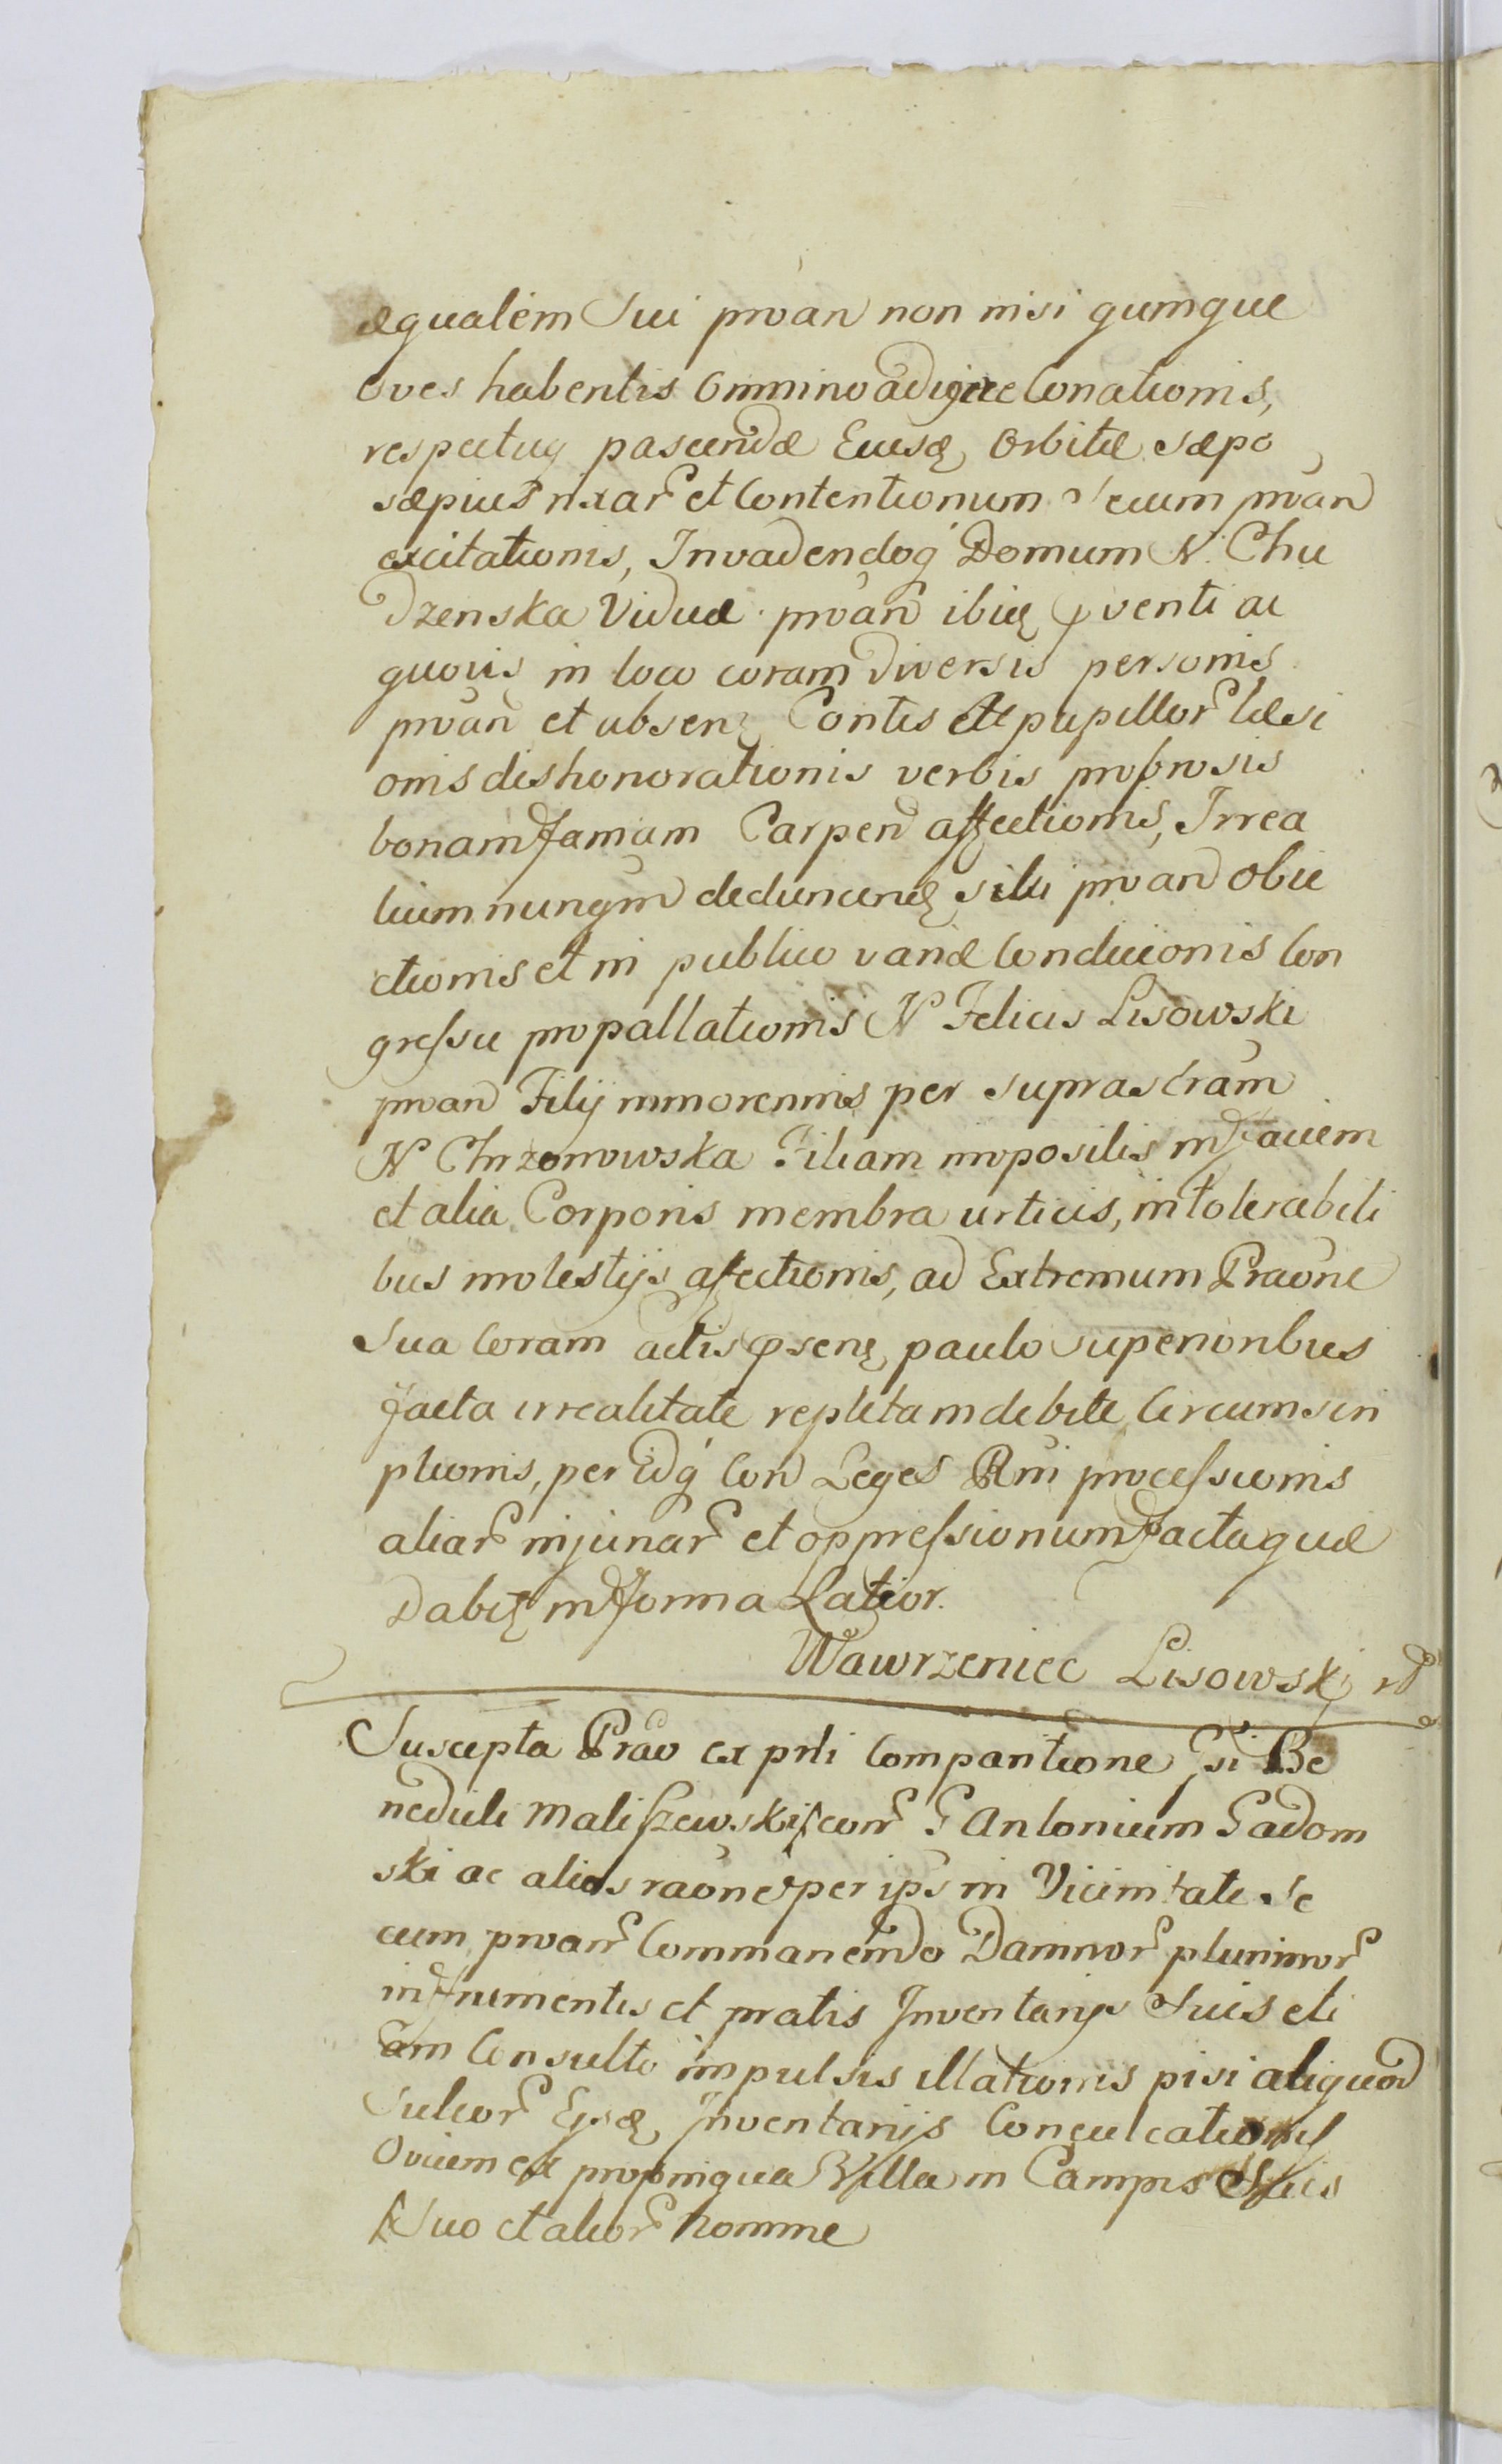 æqualem Sui proan non nisi qumque
oves habentis Omnino adigere Conationis,
respectug pascendæ Euesdę Orbitæ sæpo
sæpius rixar et Contentionum Secum proan
excitationis, Invadendog Domum N. Chu
dzenska Viduæ proan ibię venti ac
quovis in loco coram diversis personis
proan et absenę Contis pupillor læsi
onis dishonorationis verbis probrosis
bonam famam Carpend affectionis, Irrea
lium nunqm sibi proan obie
ctionis et in publico variæ Condicionis Con
gressu propallationis N Felicis Lisowski
proan Filij minorennis per suprascram
N Chrzonowska Filiam impositis in faciem
et alia Corporis membra urticis, intolerabili
bus molestijs afectionis, ad Extremum Praone
Sua Coram actis psenę paulo superioribus
facta irrealitate repletam debite Circumscri
ptionis, per Idq Con Leges Rni processionis
aliar injuriar et oppressionum facta quæ
Dabitę in forma Latior.
Wawrzeniec Lisowski
Suscepta Prao ex prli Comparitione Gsi Be
nedicti Maliszewski con G Antonium Gadom
ski ac alios raone per ips in Vicinitate Se
cum proan Commanendo Damnor plurimor
in frumentis et pratis Inventarijs Suis eti
am Consulto impulsis illationis pisi aliquod
Sulcor Ejsdę Inventarijs Conculcationis
Ovium ex propinqua Villa in Campis Suis
Suo et alior homine